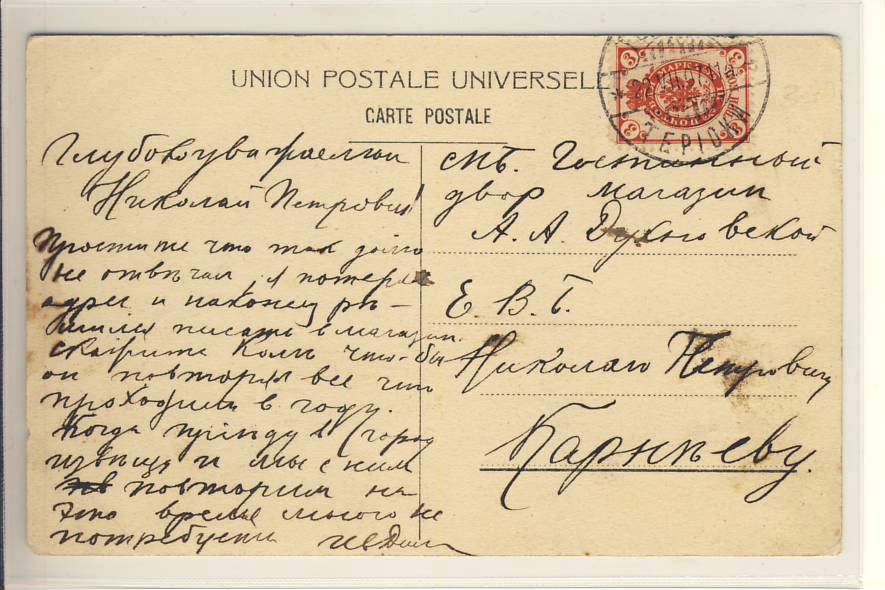 UNION POSTALE UNIVERSELLE
CARTE POSTALE
МАРКА
3
3
3
3
ТЕРIОКИ
Глубокоуважаемый
Николай Петрович!
Простите что так долго
не отвѣчал, я потерял
адрес и наконец рѣ-
шился писать в магазин.
скажите Коли что-бы
он повторял все что
проходили в году.
Когда прiѣду в город
и мы с ним
повторим на
это время много не
потребуется
СПб. Гостинный
двор магазин
А. А. Духновской
Е. В. Б.
Николаю Петровичу
Карнѣеву.